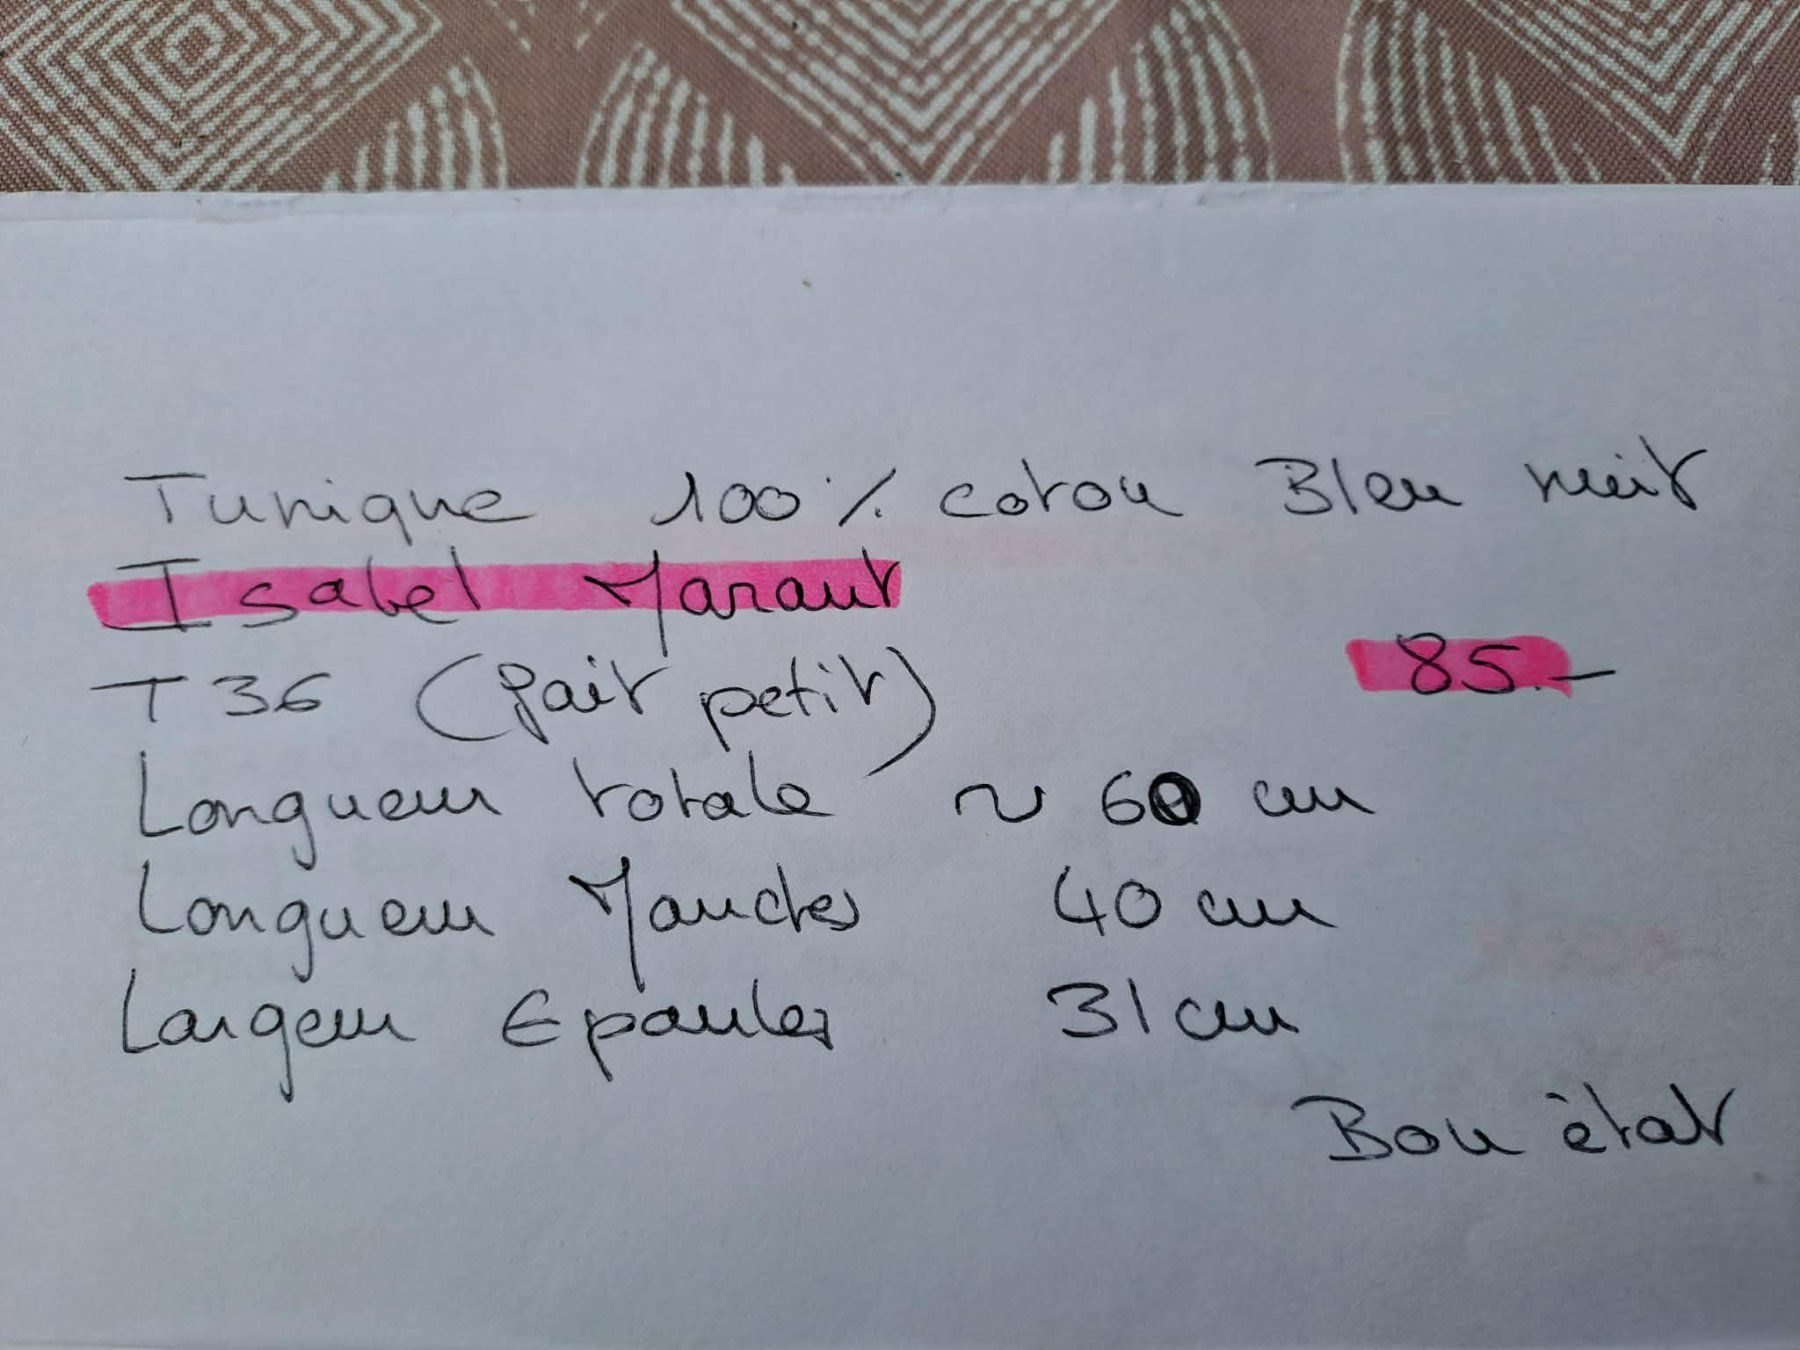 Tunique 100% coton Bleu nuit
Isabel Marant
T36 (fait petit) 85.-
Longueur totale ~ 60 cm
Longueur Manches 40 cm
Largeur Epaules 31 cm
Bon état